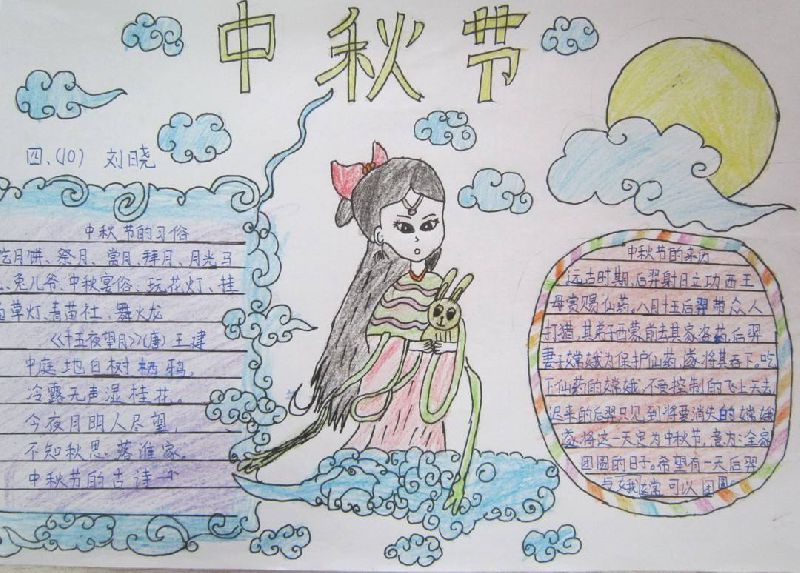 中秋节
四、(10) 刘晓
中秋节的习俗
吃月饼、祭月、赏月、拜月、月光马
、兔儿爷、中秋宴俗、玩花灯、挂
草灯、青苗社、舞火龙
《十五夜望月》(唐) 王建
中庭地白树栖鸦，
冷露无声湿桂花。
今夜月明人尽望，
不知秋思落谁家。
中秋节的古诗
中秋节的来历
远古时期，后羿射日立功西王
母赏赐仙药。八月十五后羿带众人
打猎，其弟子西蒙前去其家盗药，后羿
妻子嫦娥为保护仙药，遂将其吞下。吃
下仙药的嫦娥，不受控制的飞上天去，
迟来的后羿只见到将要消失的嫦娥
遂将这一天定为中秋节，意为：全家
团圆的日子。希望有一天后羿
与嫦娥可以团圆